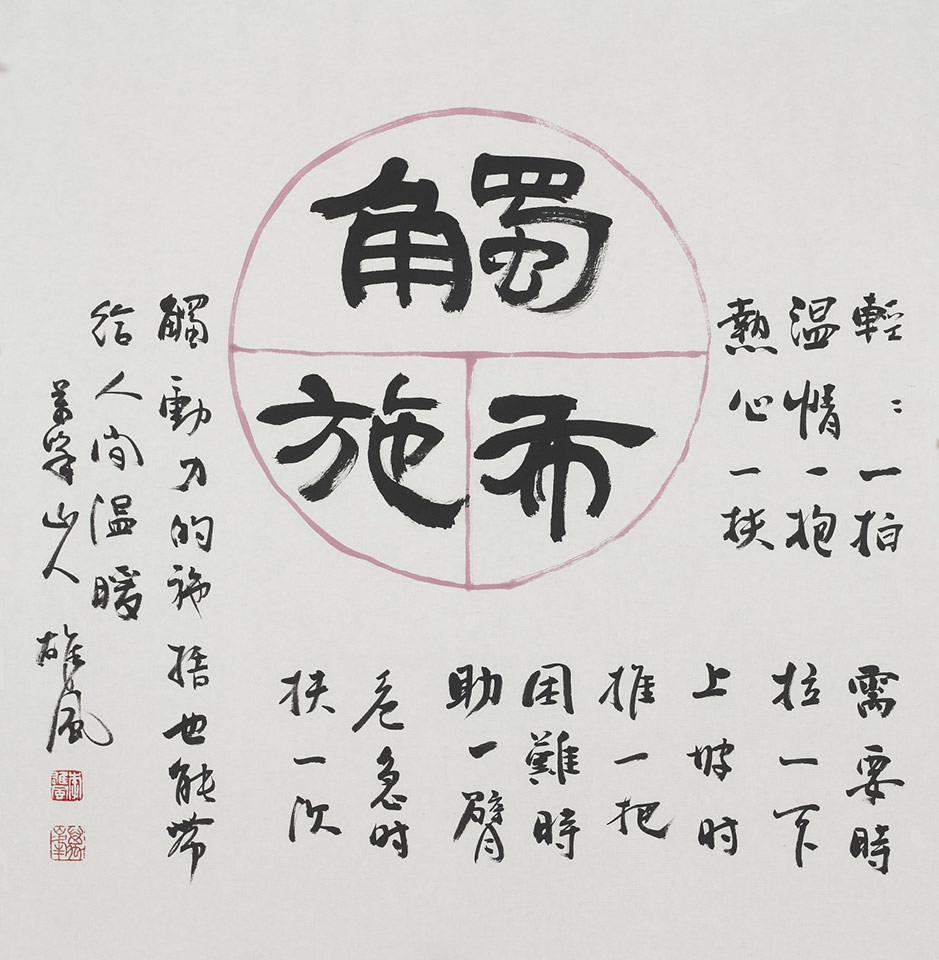 觸
布施
輕：一拍
温情一抱
熱心一扶
需要時
拉一下
上坡时
推一把
困難時
助一臂
危急时
扶一次
觸動力的施捨也能帶
给人间温暖
萬峯山人
雄風